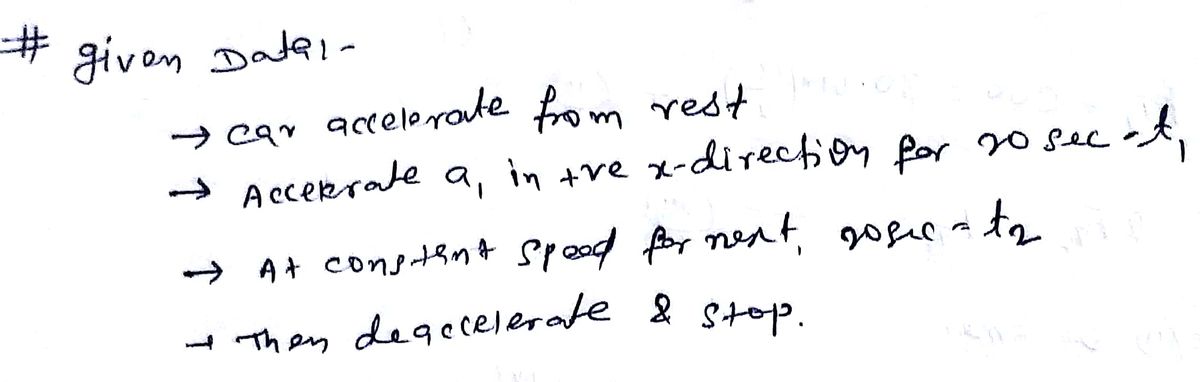 # given Data:-
→ car accelerate from rest
→ Accelerate a₁ in +ve x-direction for 20 sec = t₁
→ At constant speed for next, 20 sec = t₂
→ Then deaccelerate & stop.